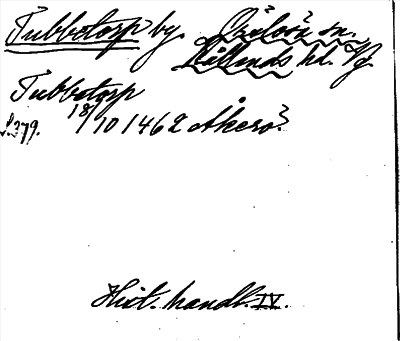 Tubbetorp by. Örslösa sn.
Kållands hd. Vg.
Tubbetorp
s. 279. 18/10 1462 Åkerö?
Hist. handl. IV.